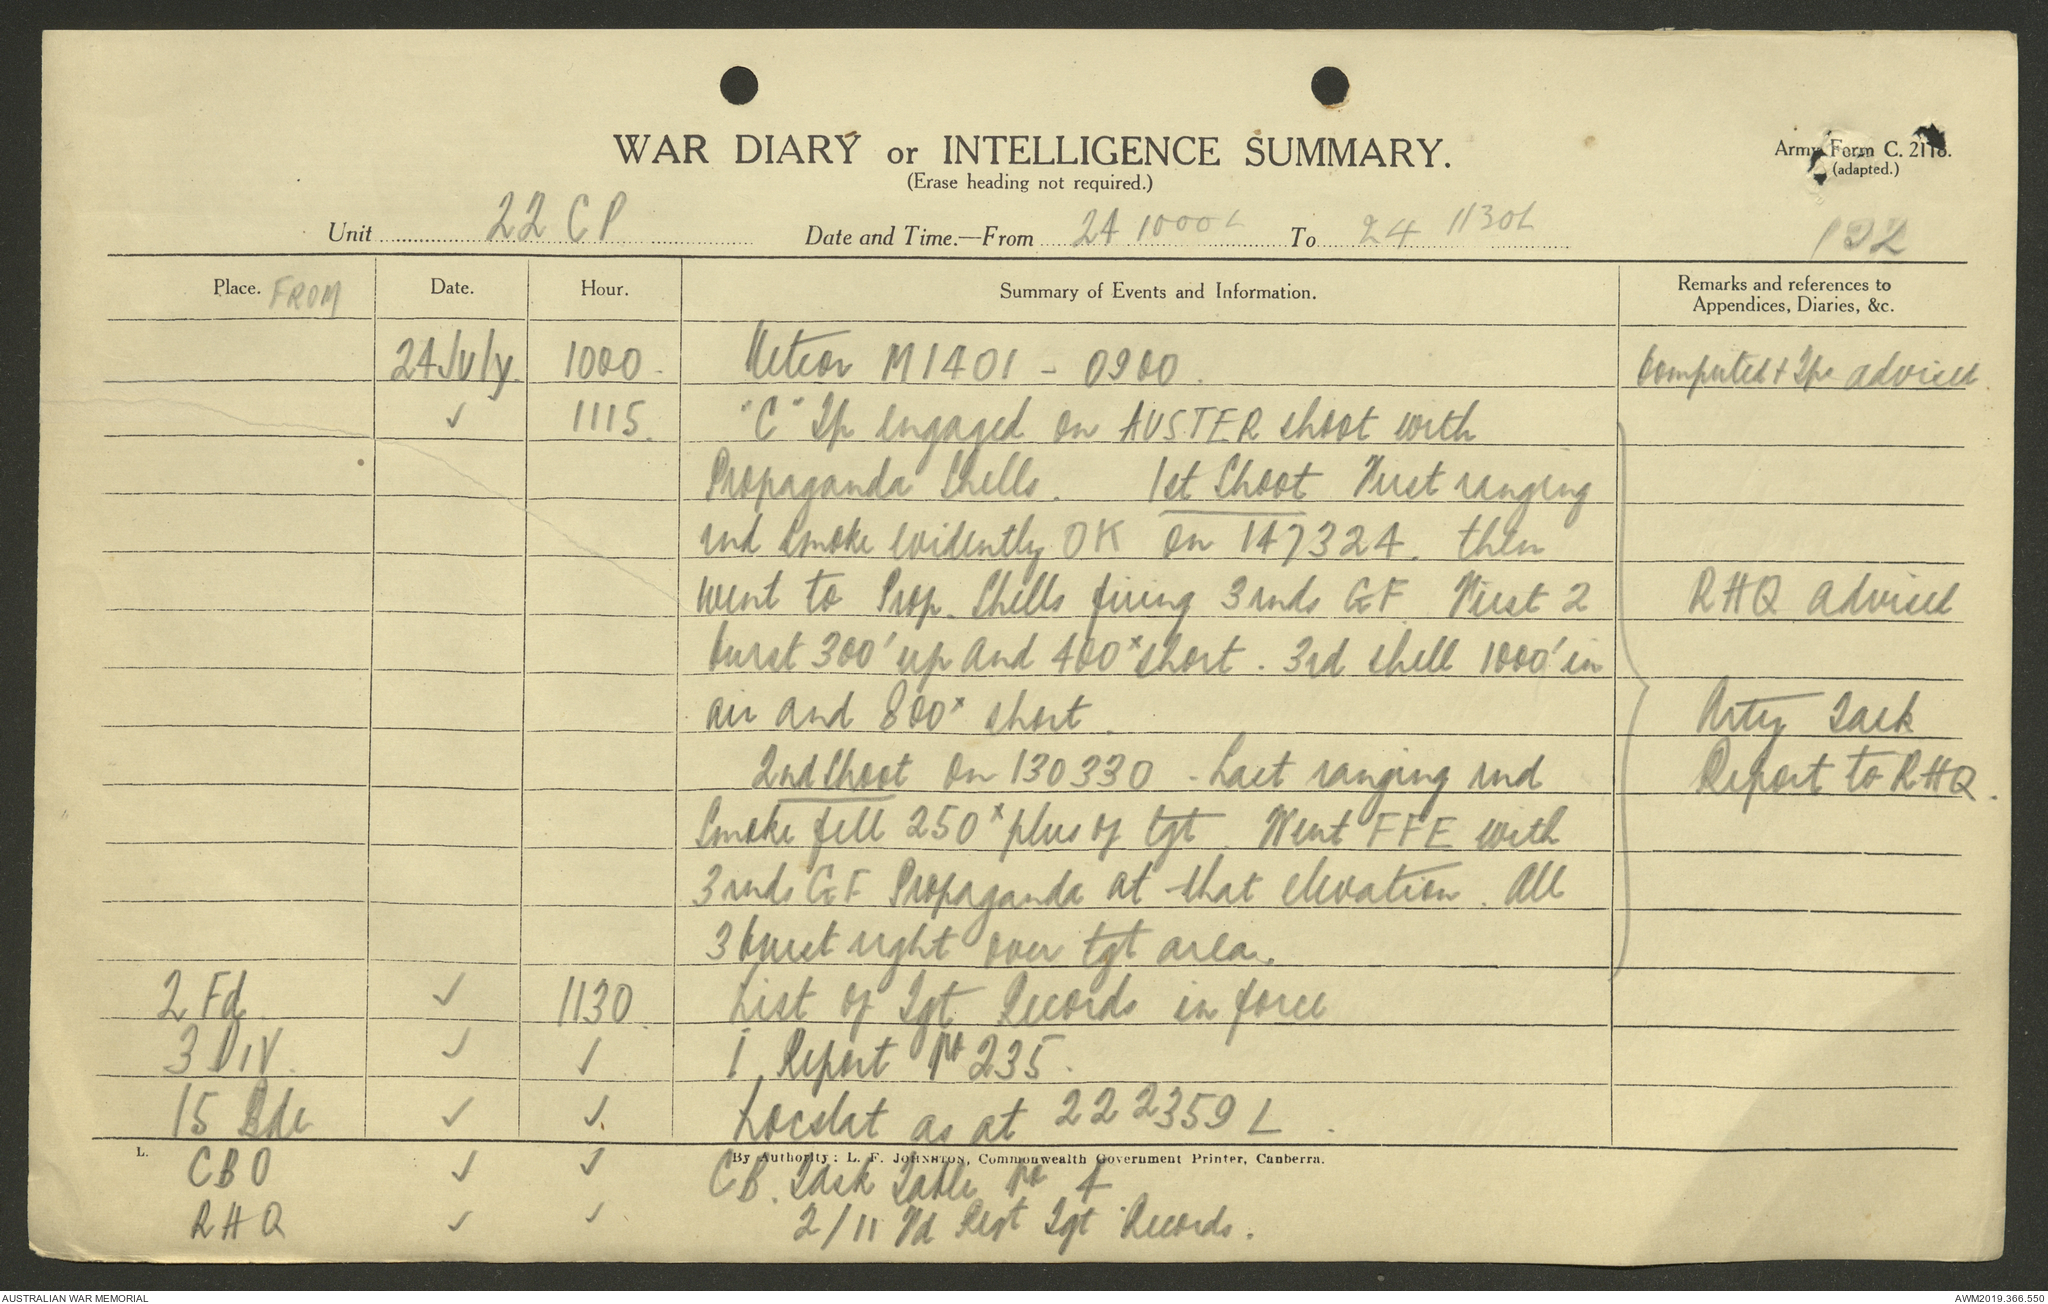 WAR DIARY or INTELLIGENCE SUMMARY.
(Erase heading not required.)
Army Form C. 2118.
(adapted.)
Unit 22 CP Date and Time.—From 24 1000L To 24 1130L
122
Place. FROM Date. Hour. Summary of Events and Information. Remarks and references to Appendices, Diaries, &c.
24 July. 1000. Meteor M1401 - 0900. Computed + Tps advised.
✓ 1115. "C" Tp engaged on AUSTER shoot with
Propaganda Shells. 1st Shoot First ranging
rnd smoke evidently OK on 147324. then
went to Prop. Shells firing 3 rnds GF First 2 RHQ advised
burst 300' up and 400x short. 3rd shell 1000' in
air and 800x short. Arty Task
2nd Shoot on 130330 - Last ranging rnd Report to RHQ.
Smoke fell 250x plus of tgt. Went FFE with
3 rnds GF Propaganda at that elevation. All
3 burst right over tgt area.
2 Fd. ✓ 1130. List of Tgt Records in force
3 DIV. ✓ ✓ I. Report No 235.
15 Bde ✓ ✓ Locstat as at 222359L.
L. By Authority: L. F. JOHNSTON, Commonwealth Government Printer, Canberra.
CBO ✓ ✓ CB. Task Table No 4
RHQ ✓ ✓ 2/11 Fd Regt Tgt Records.
AUSTRALIAN WAR MEMORIAL
AWM2019.366.550